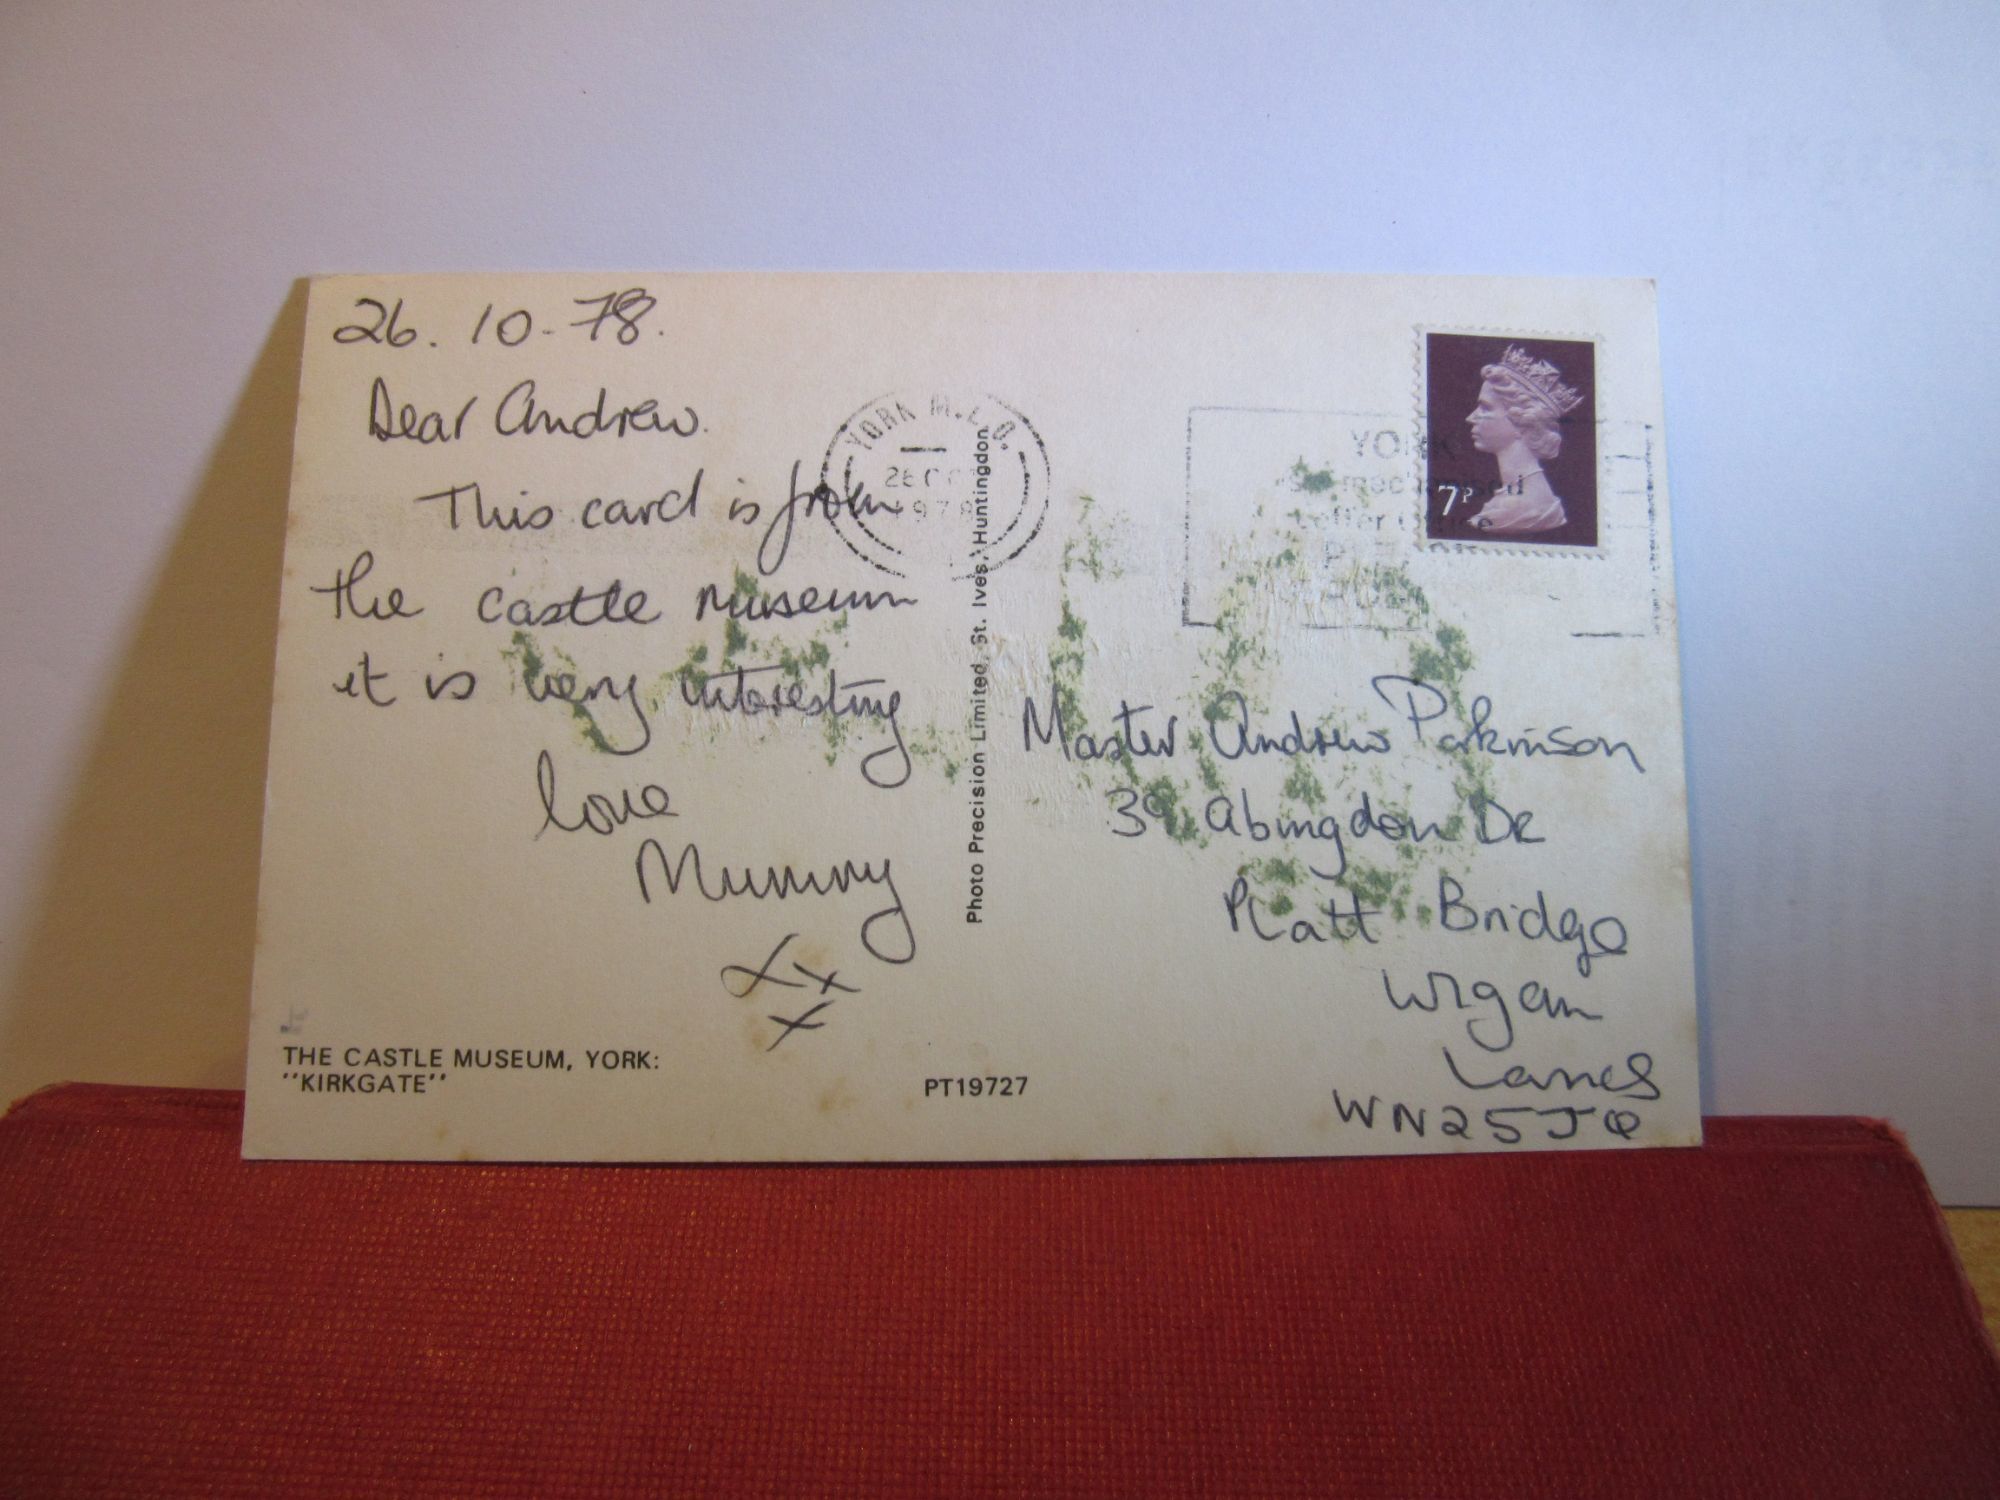 26. 10-78.
Dear Andrew.
This card is from
the castle museum
it is very interesting
love
Mummy
xx
x
THE CASTLE MUSEUM, YORK:
"KIRKGATE"
PT19727
Photo Precision Limited, St. Ives, Huntingdon
YORK M.L.O.
1978
YORK
Letter Office
7P
Master Andrew Parkinson
39 Abingdon DR
Platt Bridge
Wigan
Lancs
WN25JQ